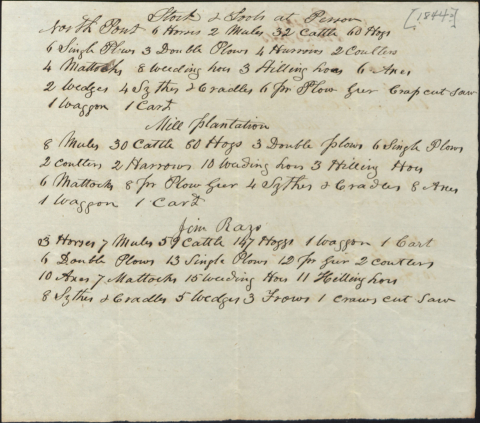 Stock & Tools at Person [1844]
North Pont 6 Horses 2 Mules 32 Cattle 60 Hogs
6 Single Plows 3 Double Plows 4 Hurrows 2 Coulters
4 Mattocks 8 weeding hoes 3 Hilling hoes 6 Axes
2 Wedges 4 Sythes & Cradles 6 pr Plow Geer Crap cut Saw
1 Waggon 1 Cart
Mill plantation
8 Mules 30 Cattle 60 Hogs 3 Double plows 6 Single Plows
2 coulters 2 Harrows 10 Weading hoes 3 Hilling Hoes
6 Mattocks 8 pr Plow Geer 4 Sythes & Cradles 8 Axes
1 Waggon 1 Cart
Jim Rays
3 Horses 7 Mules 59 Cattle 147 Hoggs 1 Waggon 1 Cart
6 Double Plows 13 Single Plows 12 pr Geer 2 coulters
10 Axes 7 Mattocks 15 weeding Hoes 11 Hilling hoes
8 Sythes & Cradles 5 Wedges 3 Frows 1 craws cut Saw